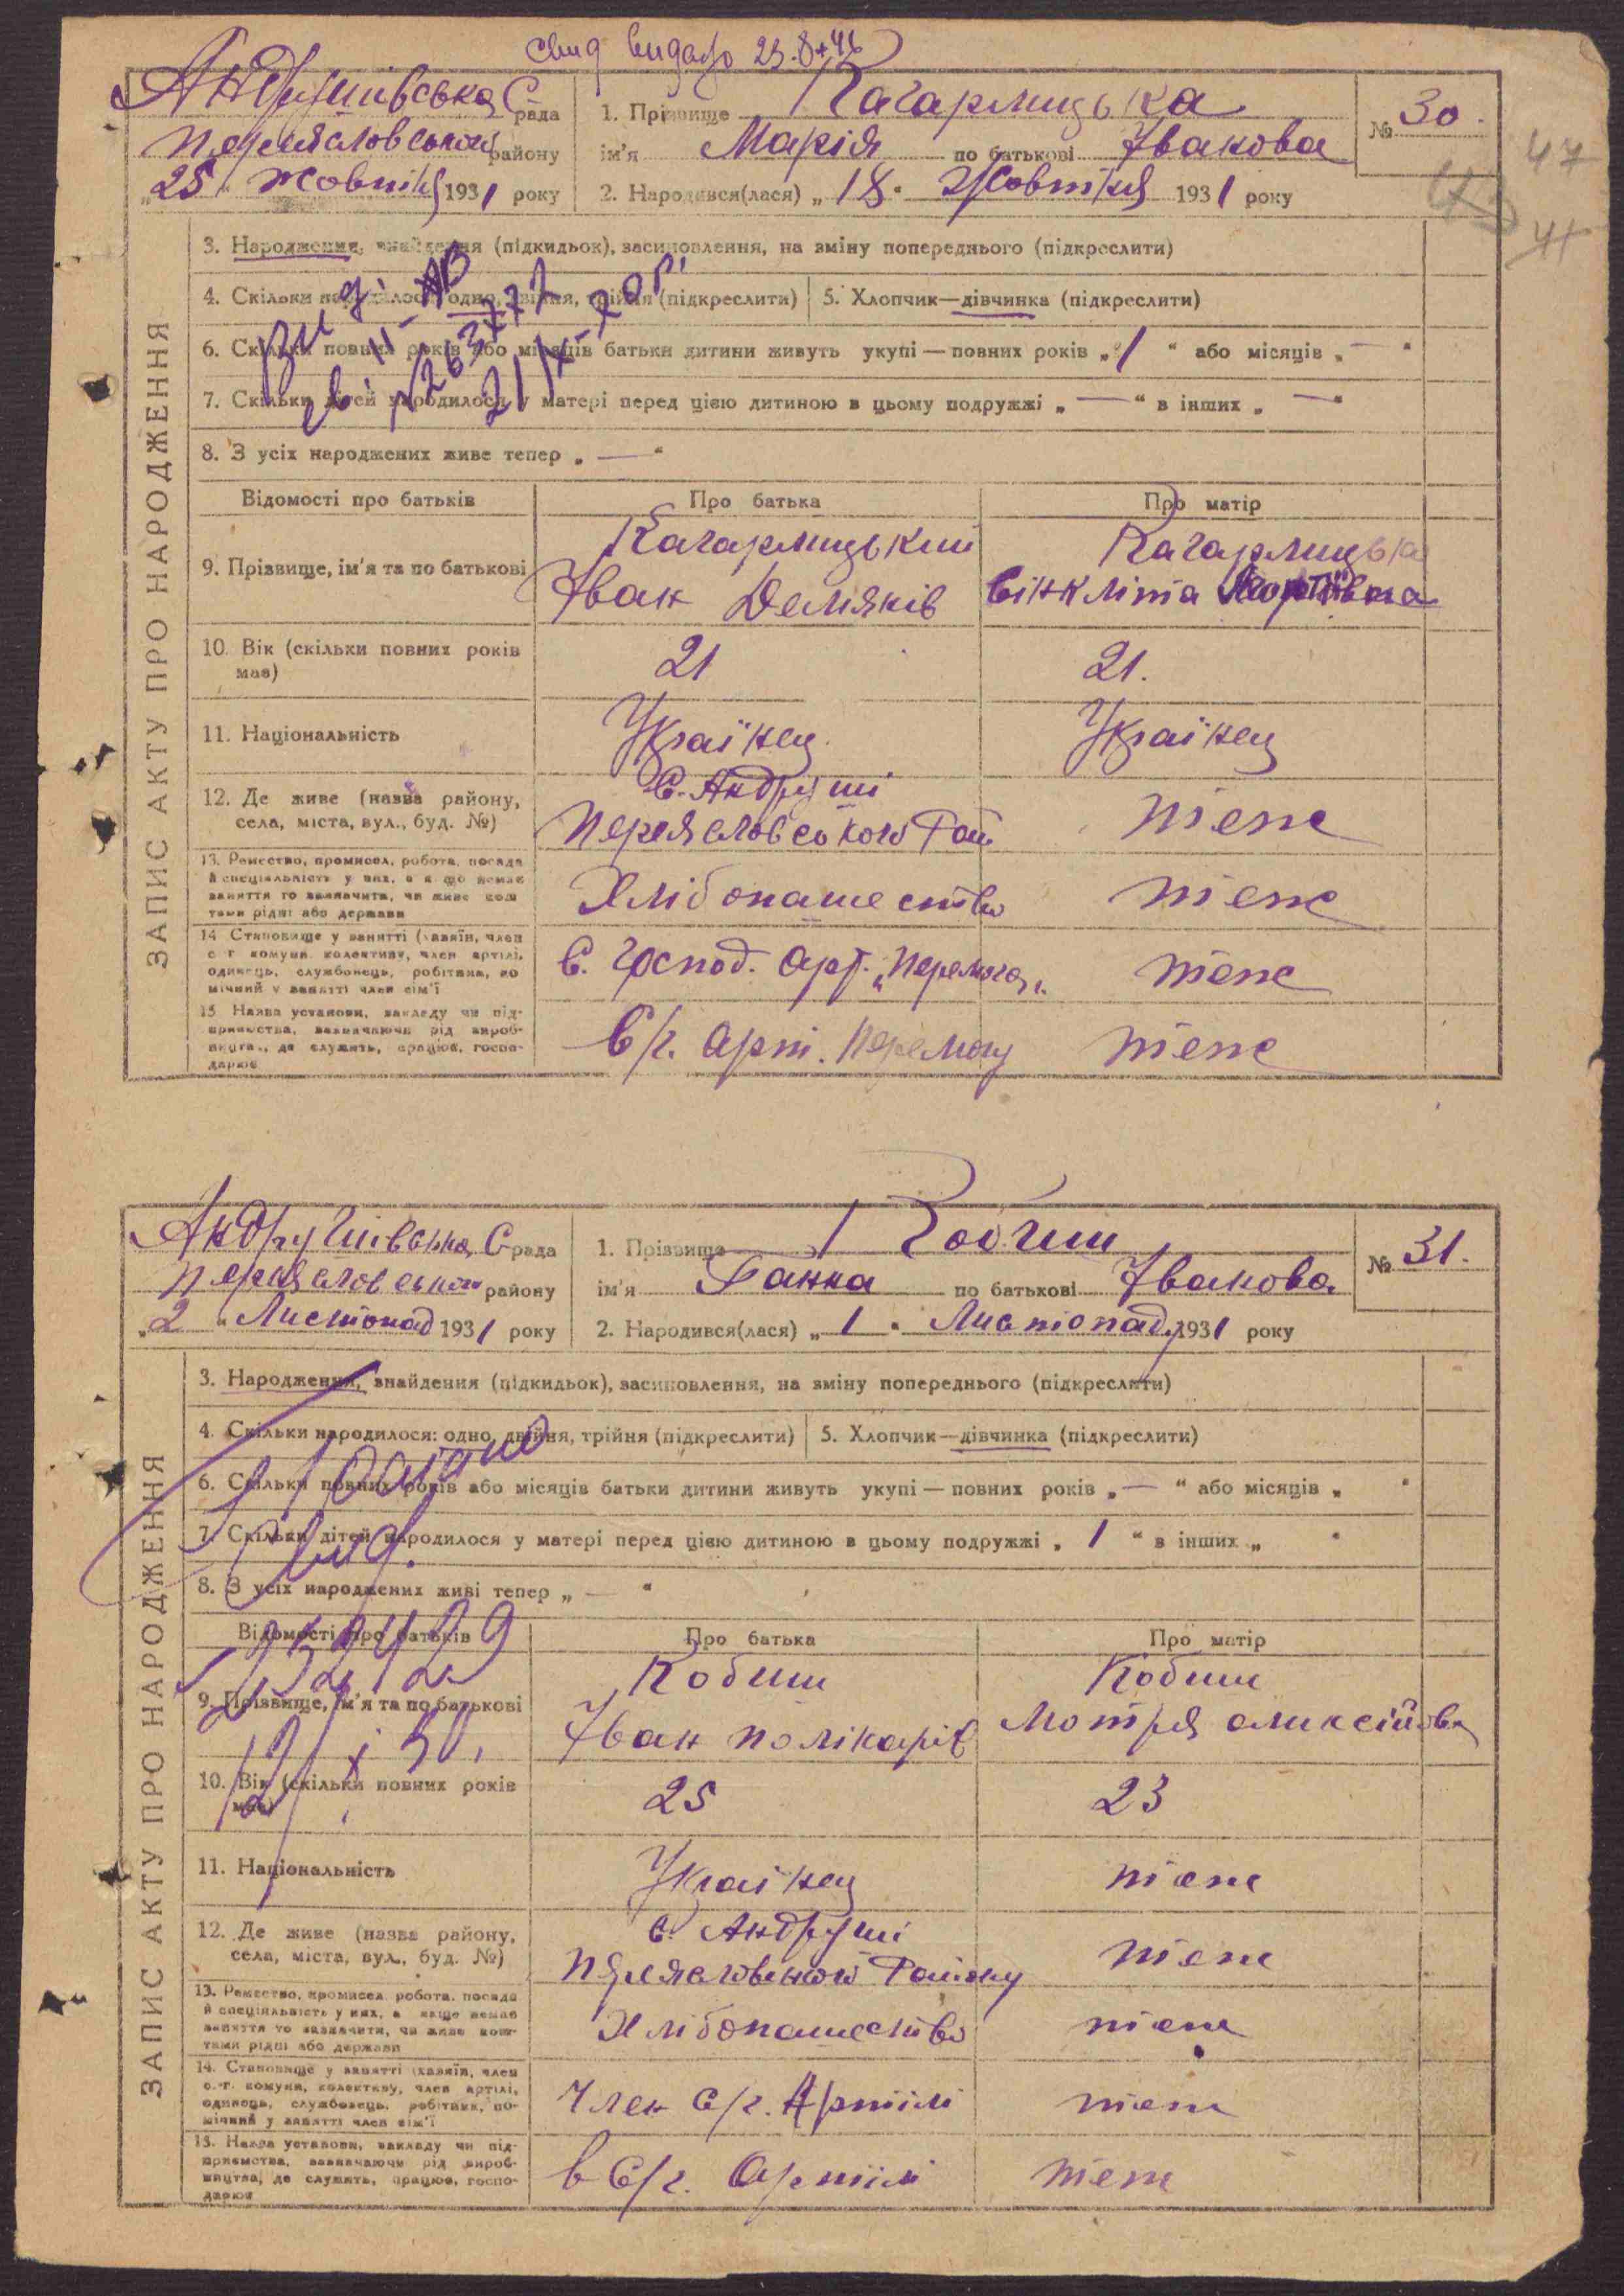 свид видано 23.8.46
Андрушівська С рада
1. Прізвище Кагарлицька
№ 30.
Переяславського району
ім'я Марія по батькові Іванова
47
„25" Жовтня 1931 року
2. Народився(лася) „18" Жовтня 1931 року
41
ЗАПИС АКТУ ПРО НАРОДЖЕННЯ
3. Народження, знайдення (підкидьок), засиновлення, на зміну попереднього (підкреслити)
4. Скільки народилося: одно, двійня, трійня (підкреслити)
5. Хлопчик—дівчинка (підкреслити)
6. Скільки повних років або місяців батьки дитини живуть укупі — повних років „1" або місяців „—"
7. Скільки дітей народилося у матері перед цією дитиною в цьому подружжі „—" в інших „—"
8. З усіх народжених живе тепер „—"
Відомості про батьків
Про батька
Про матір
9. Прізвище, ім'я та по батькові
Кагарлицький
Іван Демянів
Кагарлицька
10. Вік (скільки повних років має)
21
21.
11. Національність
Українец
Українец
12. Де живе (назва району,
села, міста, вул., буд. №)
С. Андруші
Переяславського Рай
теже
13. Ремество, промисел, робота, посада
й спеціяльність у них, а якщо немає
заняття то зазначити, чи живе кош
тами рідні або держави
Хлібопашество
теже
14. Становище у занятті (хазяїн, член
с.-г. комуни, колективу, член артілі,
одинець, службовець, робітник, по
мічний у занятті член сім'ї
С. Господ. Арт. „Перемога„
теже
15. Назва установи, закладу чи під-
приємства, зазначаючи рід вироб-
ництва, де служить, працює, госпо-
дарює
С/г. арт. Перемогу
теже
Андрушівська С рада
1. Прізвище Кобиш
№ 31.
Переяславського району
ім'я Ганна по батькові Іванова
„2" Листопад 1931 року
2. Народився(лася) „1" Листопад 1931 року
ЗАПИС АКТУ ПРО НАРОДЖЕННЯ
3. Народження, знайдення (підкидьок), засиновлення, на зміну попереднього (підкреслити)
4. Скільки народилося: одно, двійня, трійня (підкреслити)
5. Хлопчик—дівчинка (підкреслити)
6. Скільки повних років або місяців батьки дитини живуть укупі — повних років „—" або місяців „ "
7. Скільки дітей народилося у матері перед цією дитиною в цьому подружжі „1" в інших „ "
8. З усіх народжених живі тепер „—"
Відомості про батьків
Про батька
Про матір
9. Прізвище, ім'я та по батькові
Кобиш
Іван полікарів
Кобиш
Мотря оликсійовна
10. Вік (скільки повних років має)
25
23
11. Національність
Українец
теже
12. Де живе (назва району,
села, міста, вул., буд. №)
С. Андруші
Переяславського Району
теже
13. Ремество, промисел, робота, посада
й спеціяльність у них, а якщо немає
заняття то зазначити, чи живе кош-
тами рідні або держави
Хлібопашество
теже
14. Становище у занятті (хазяїн, член
с.-г. комуни, колективу, член артілі,
одинець, службовець, робітник, по-
мічний у занятті член сім'ї
Член С/г. Артілі
теже
15. Назва установи, закладу чи під-
приємства, зазначаючи рід вироб-
ництва, де служить, працює, госпо-
дарює
в С/г. Артілі
теже